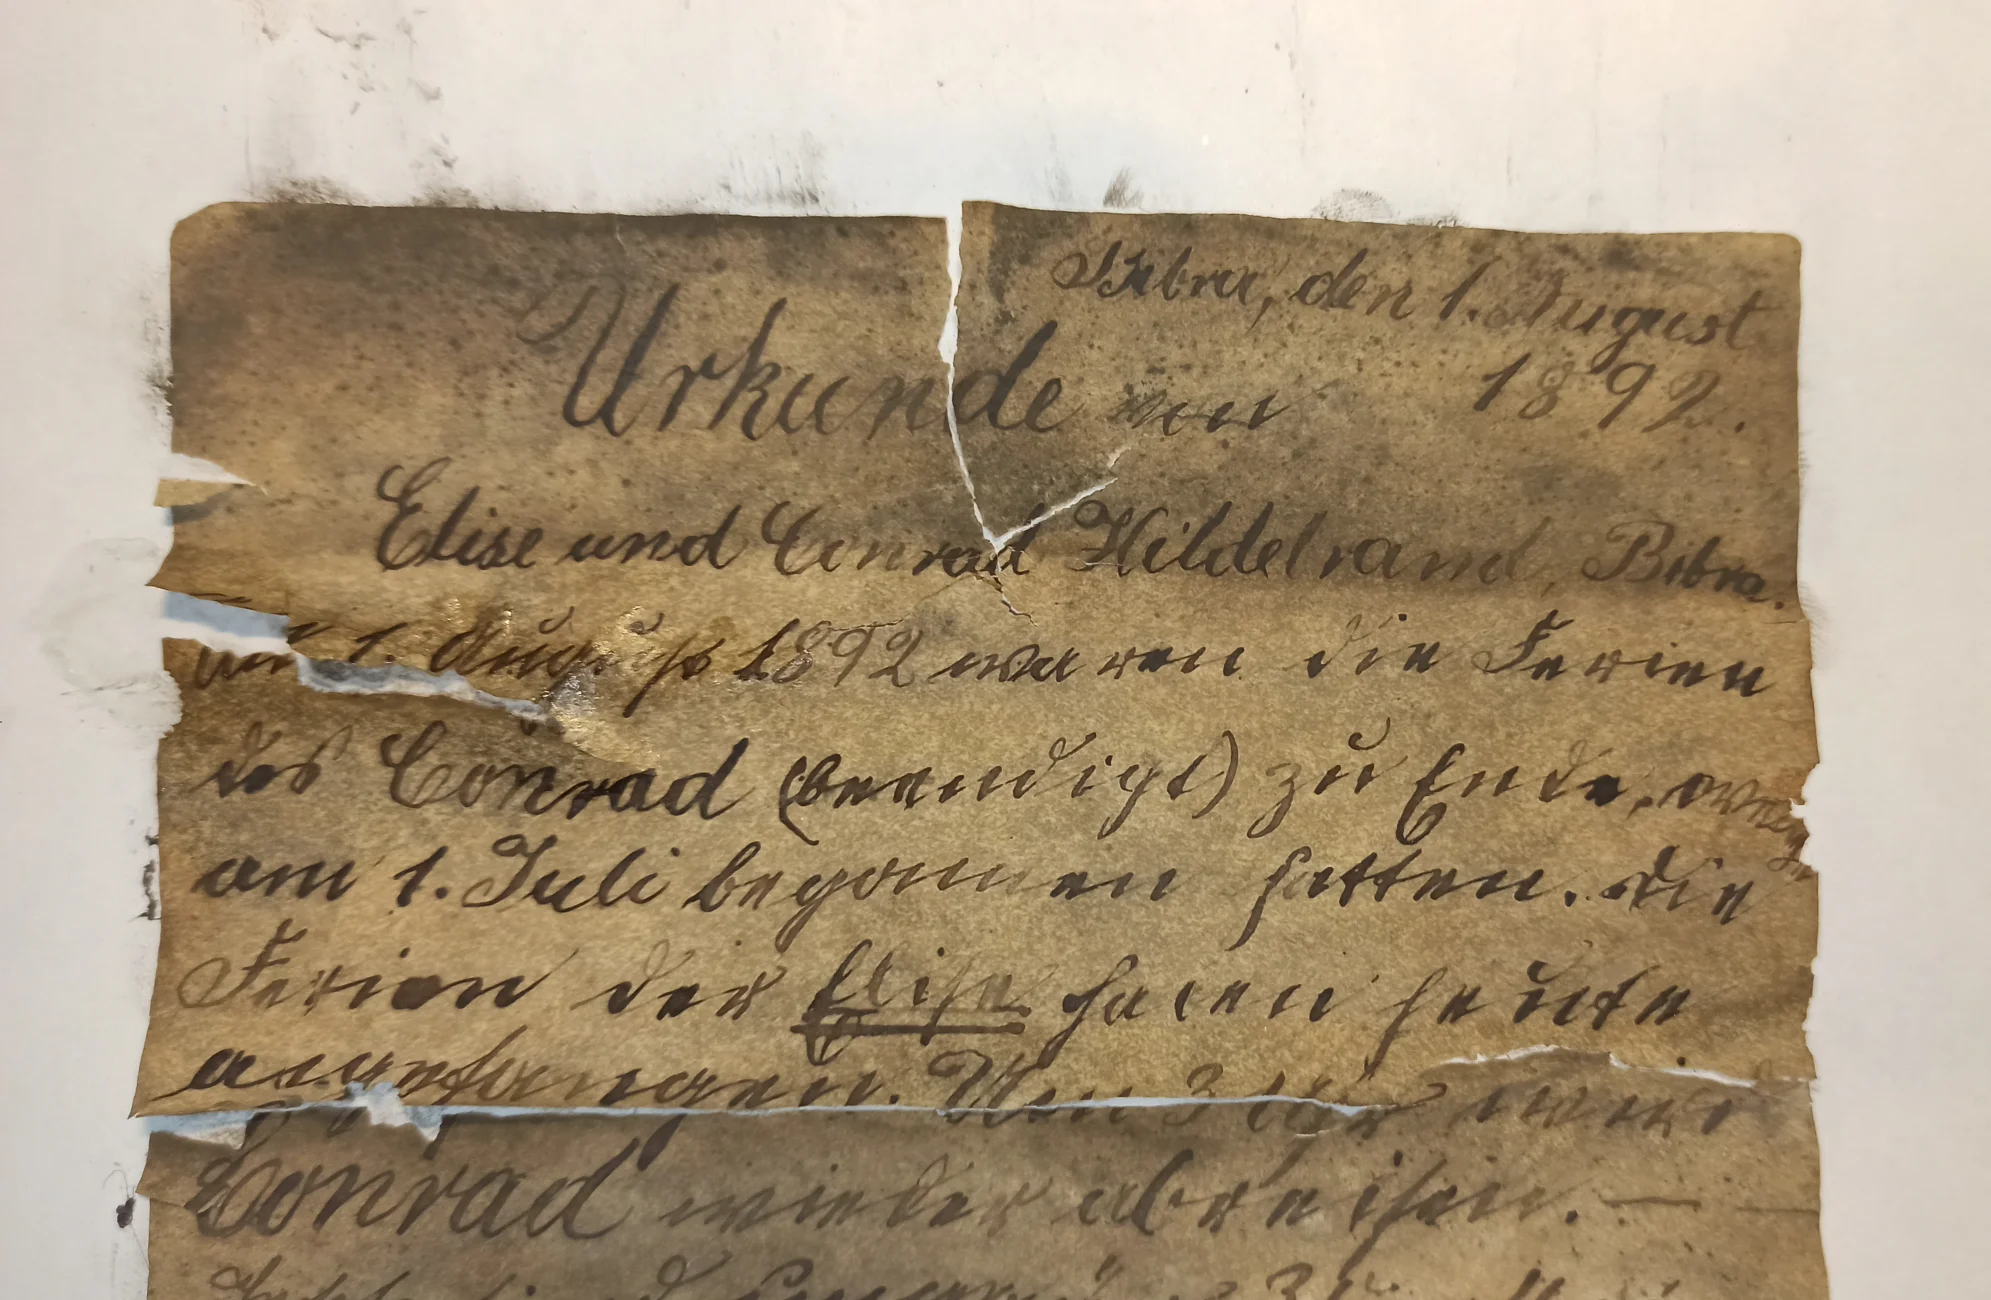 Bibra, den 1. August
1892.
Urkunde von
Elise und Conrad Hildebrand, Bibra.
Am 1. August 1892 waren die Ferien
des Conrad (beendigt) zu Ende, welche
am 1. Juli begonnen hatten. Die
Ferien der Elise haben heute
angefangen. Um 3 Uhr wird
Conrad wieder abreisen. —